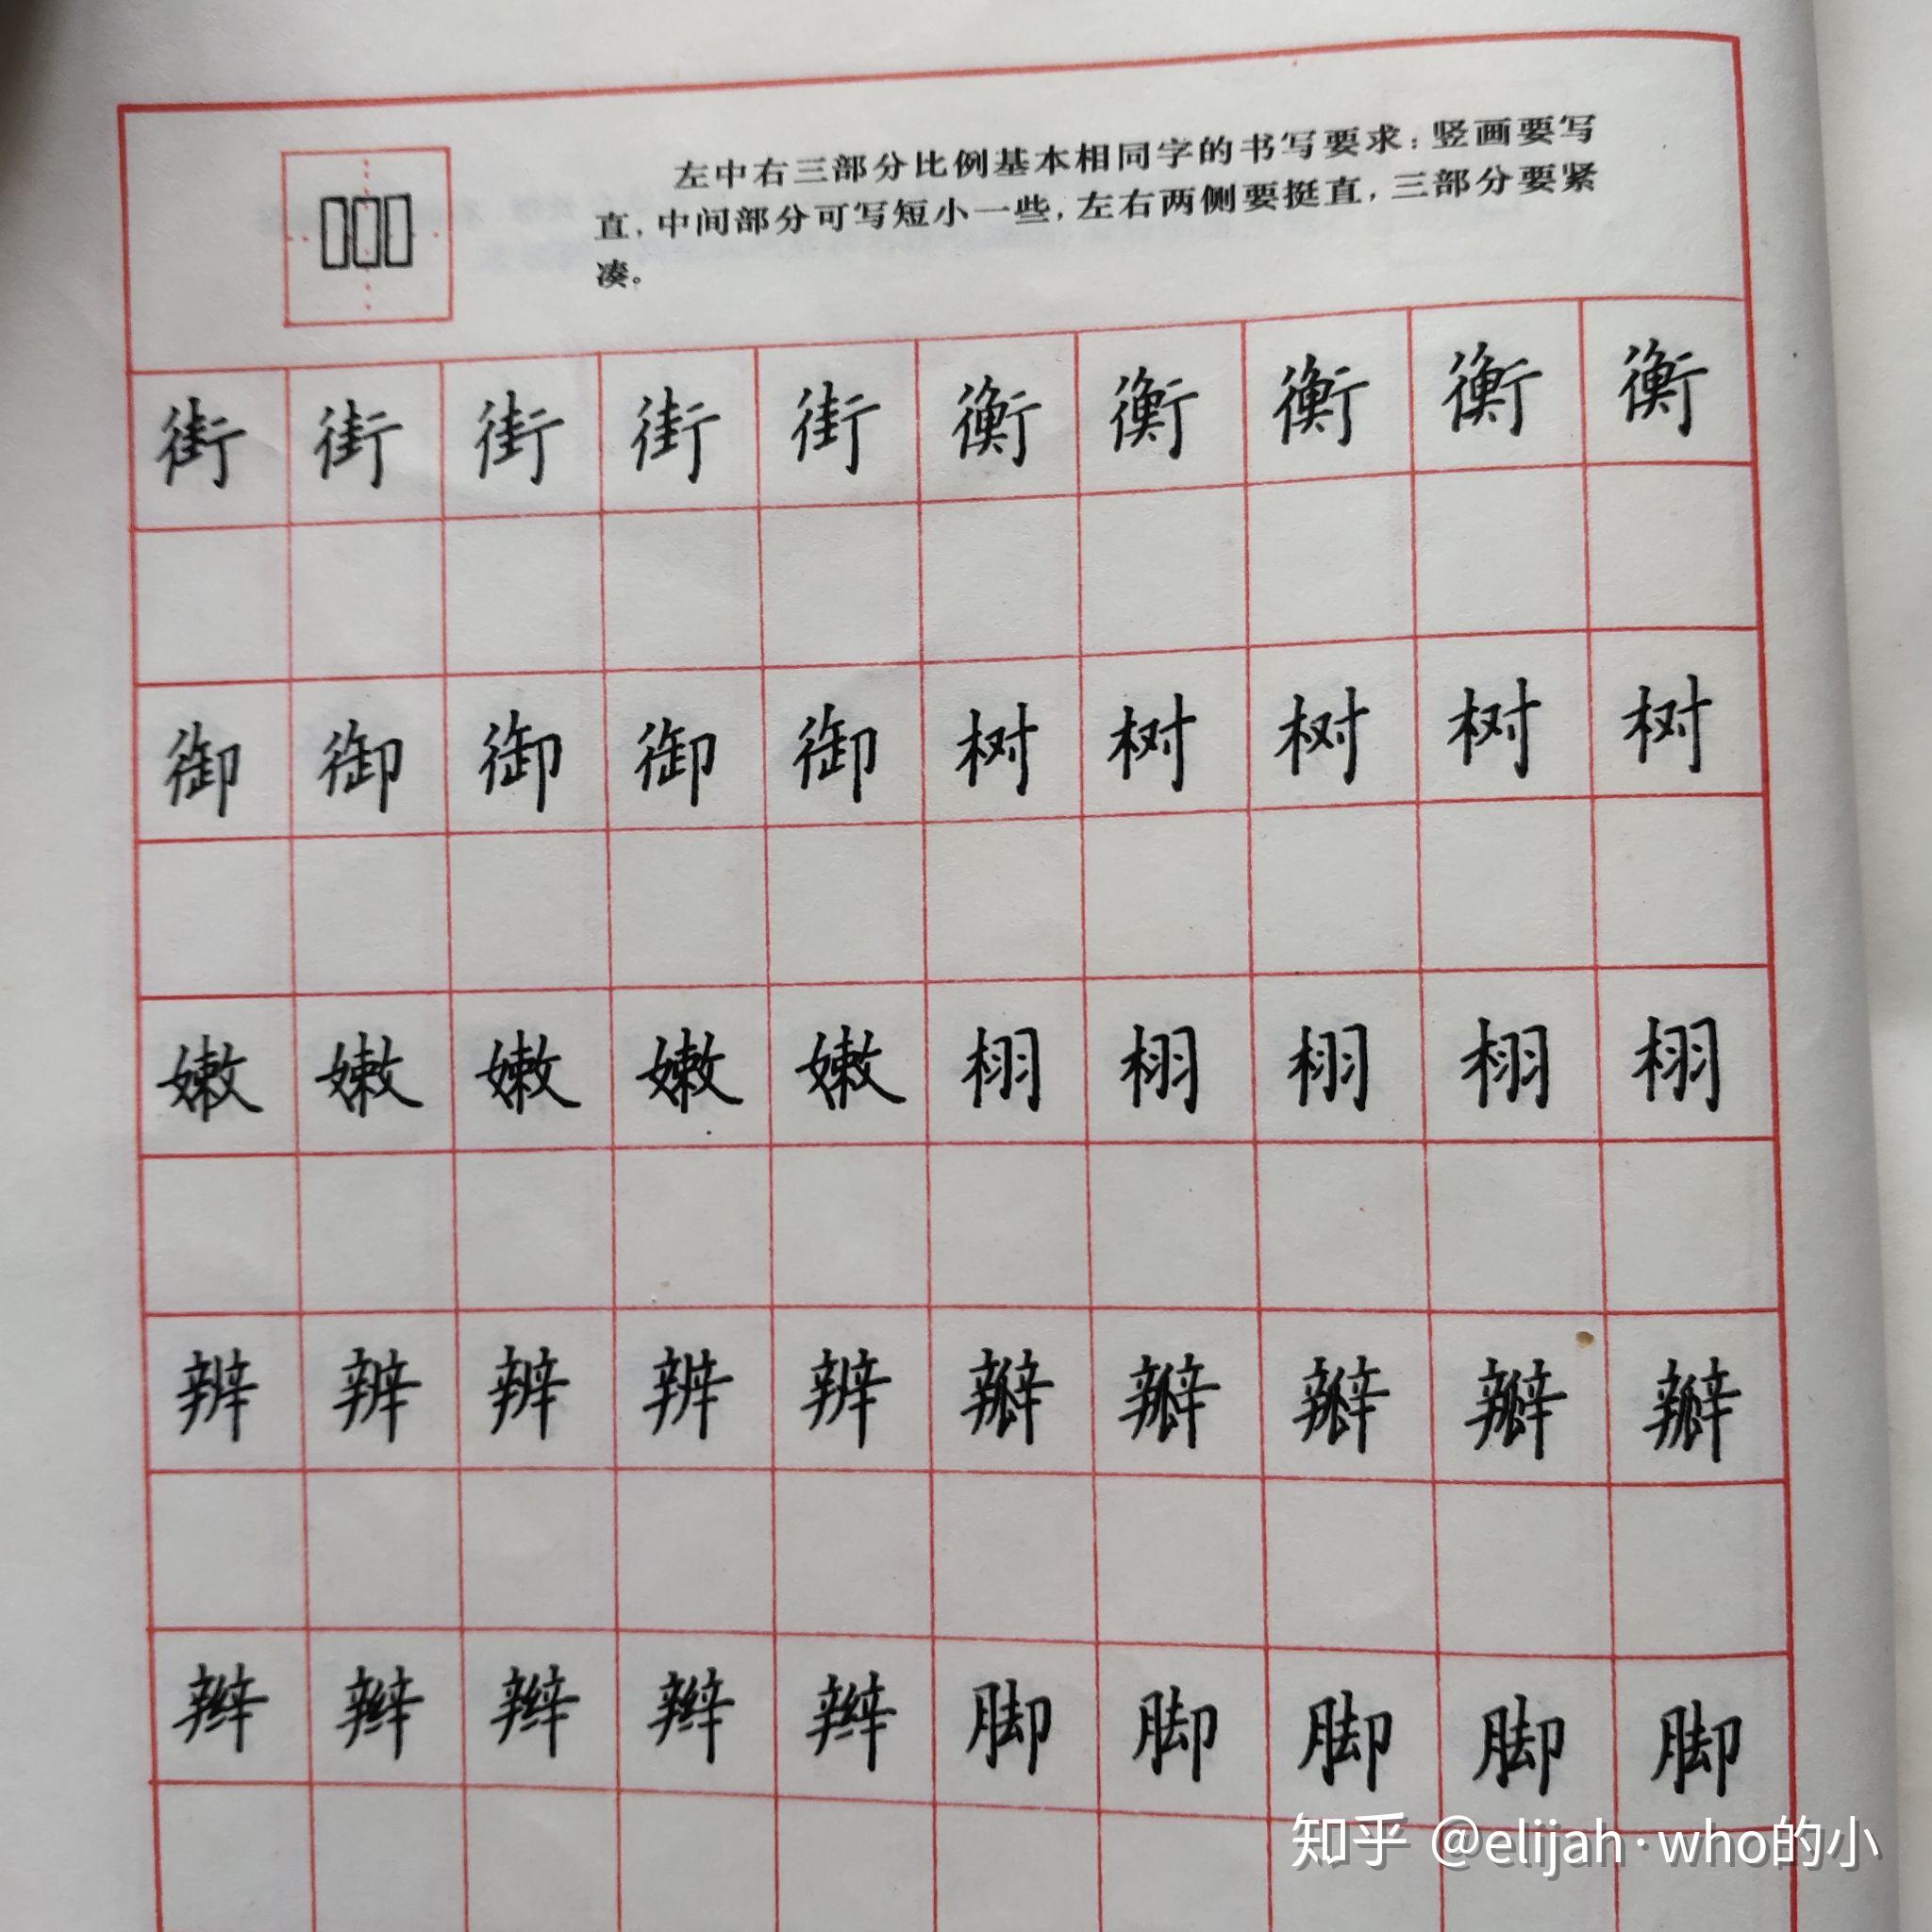 左中右三部分比例基本相同字的书写要求：竖画要写
直，中间部分可写短小一些，左右两侧要挺直，三部分要紧
凑。
街街街街街衡衡衡衡衡
御御御御御树树树树树
嫩嫩嫩嫩嫩栩栩栩栩栩
辨辨辨辨辨瓣瓣瓣瓣瓣
辫辫辫辫辫脚脚脚脚脚
知乎 @elijah·who的小